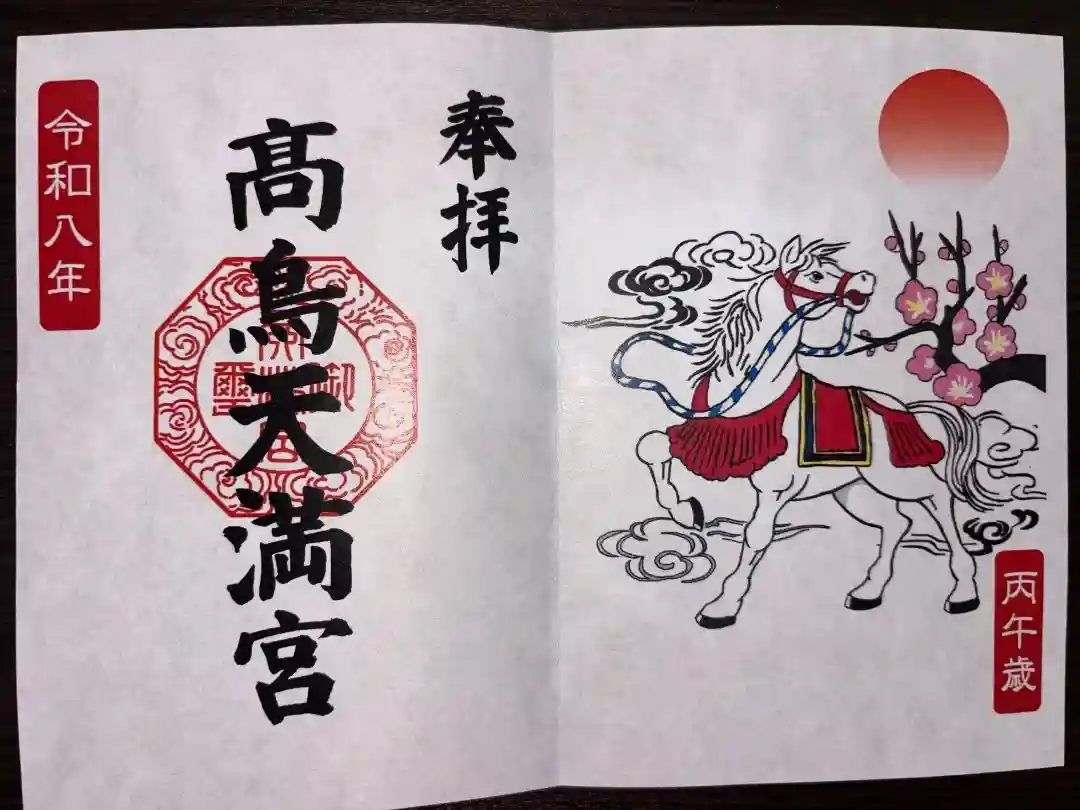 丙午歳
奉拝
髙鳥天満宮
令和八年